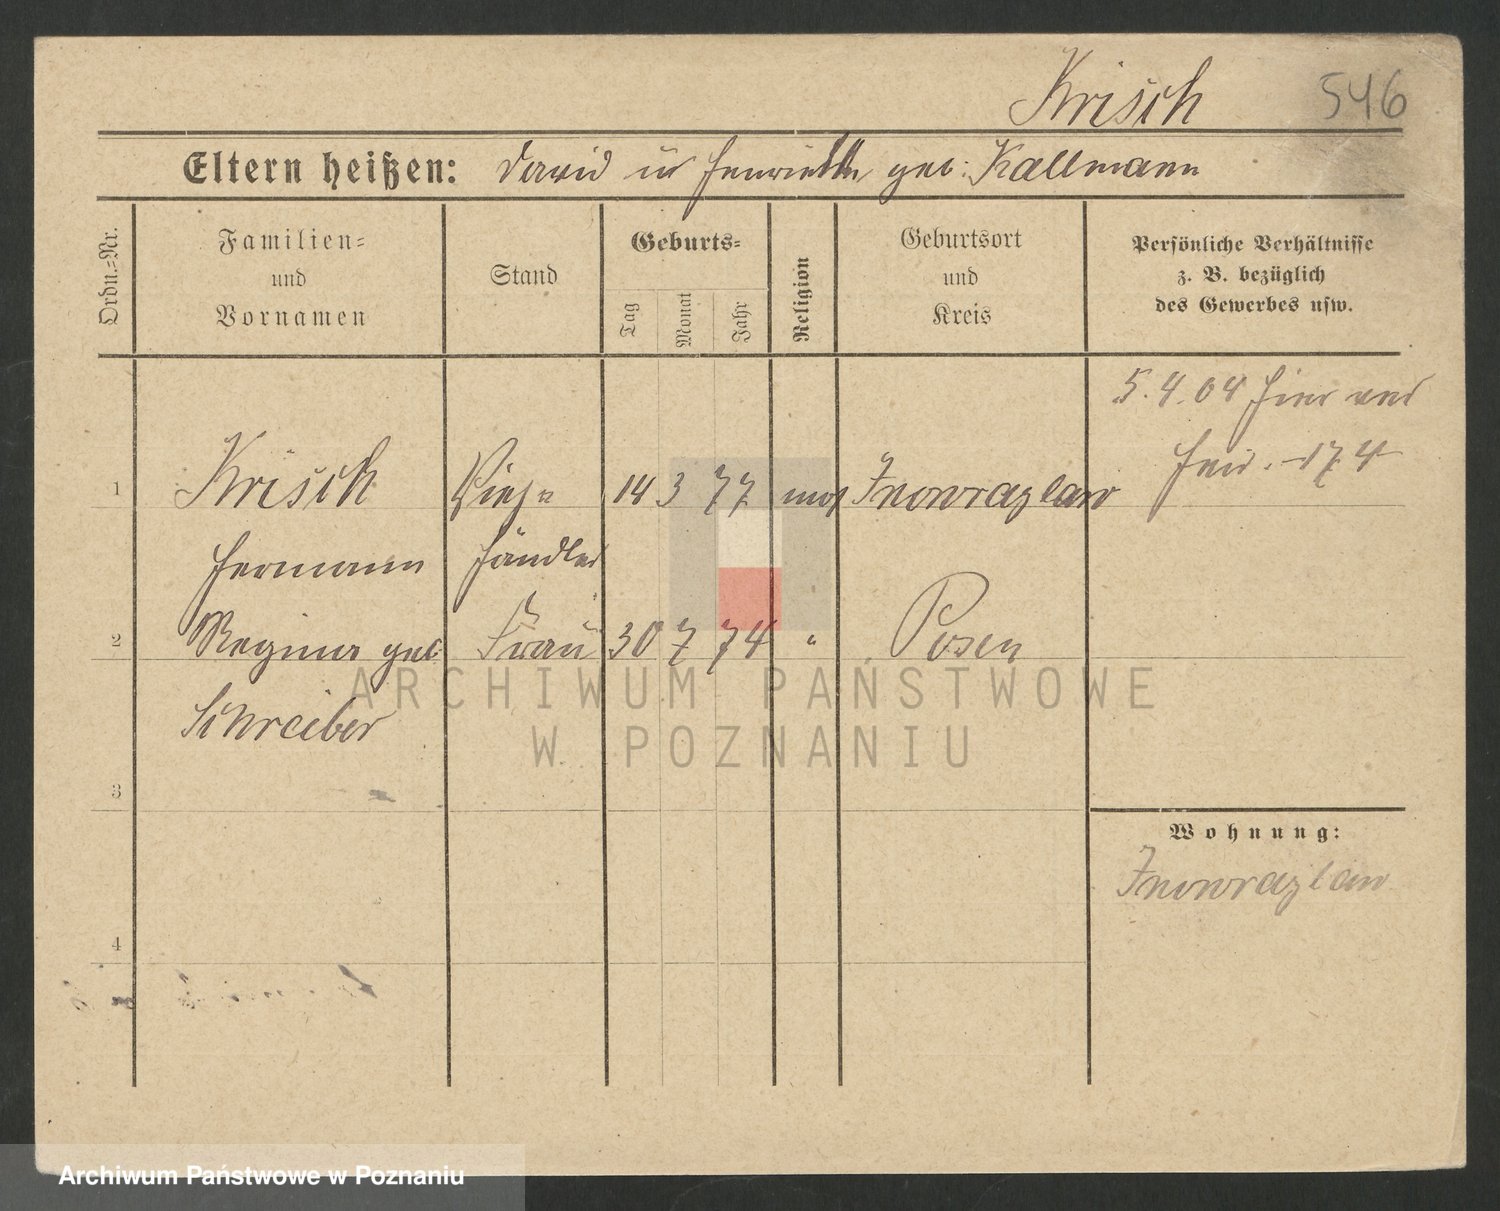 Krisch 546
Eltern heißen: David u Henriette geb. Kallmann
Ordn.-Nr.
Familien- und Vornamen
Stand
Geburts-
Tag
Monat
Jahr
Religion
Geburtsort und Kreis
Persönliche Verhältnisse
z. B. bezüglich
des Gewerbes usw.
5.4.04 hier
174
1 Krisch Vieh- 14 3 77 mos Inowrazlaw
Hermann händler
2 Regina geb Frau 30 7 74 " Posen
Schreiber
3
4
Wohnung:
Inowrazlaw
ARCHIWUM PAŃSTWOWE
W POZNANIU
Archiwum Państwowe w Poznaniu